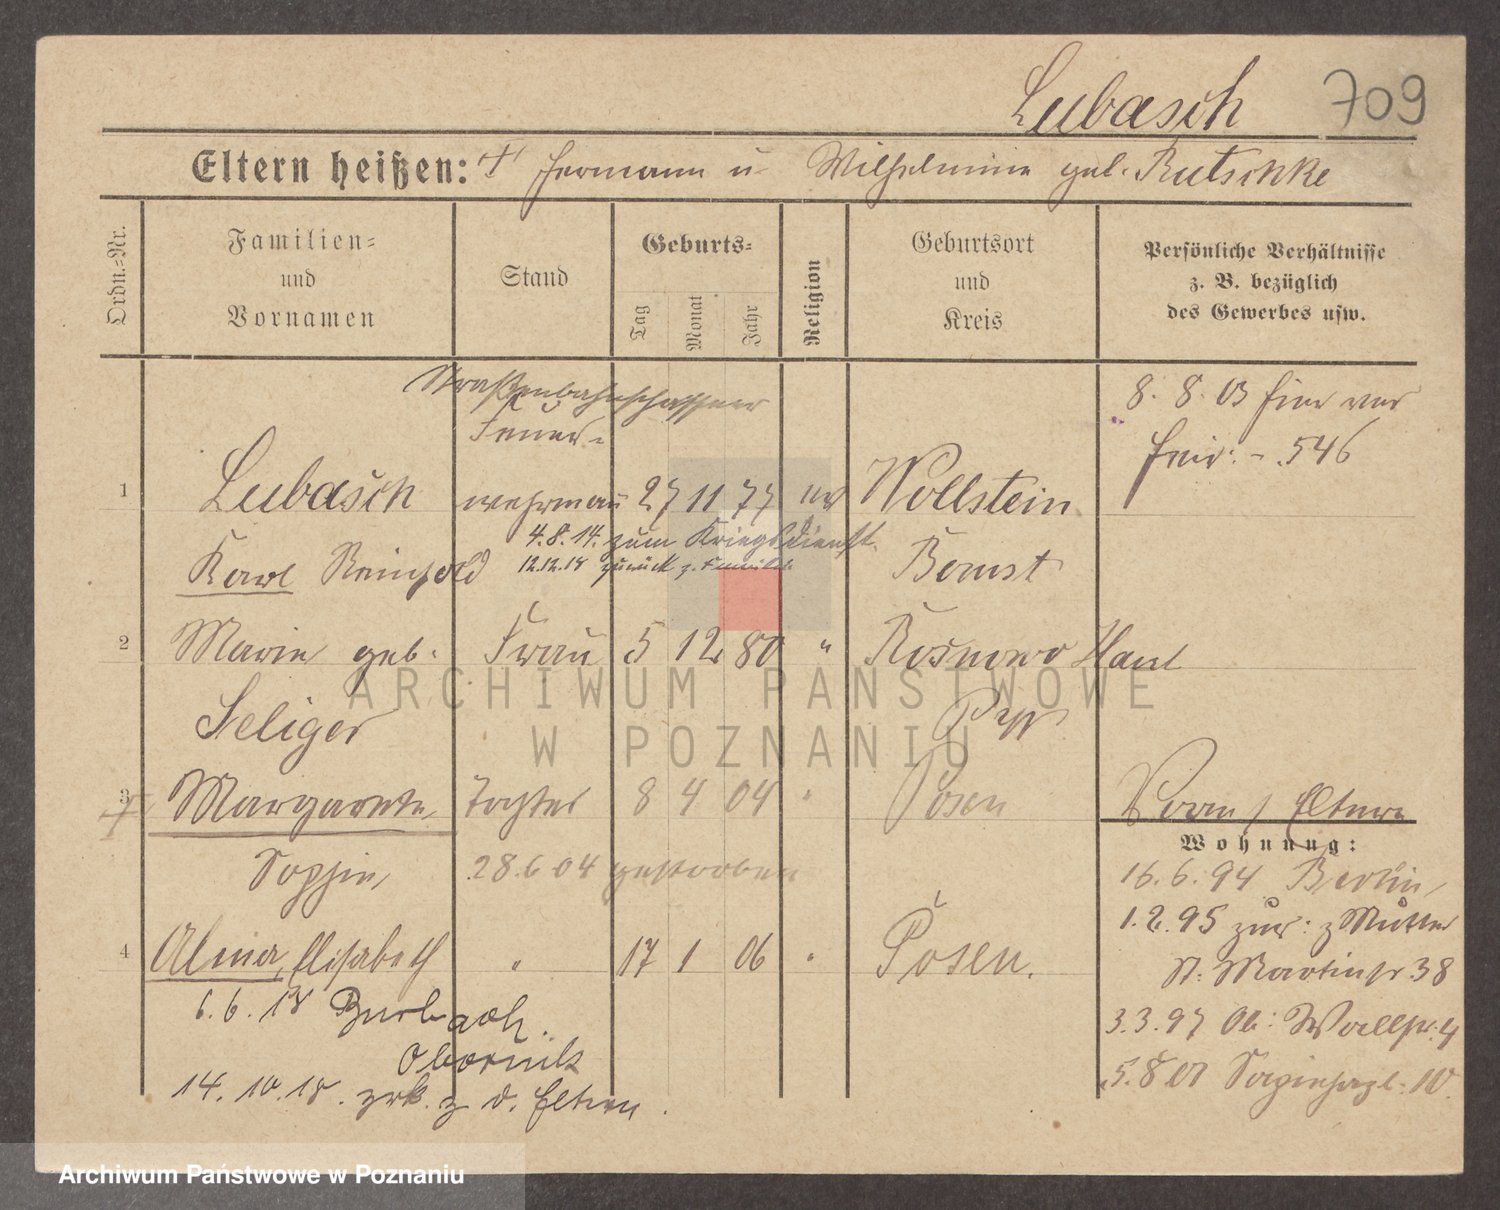 Lubasch 709
Eltern heißen: † Hermann u Wilhelmine geb. Rutschke
Ordn.-Nr.
Familien-
und
Vornamen
Stand
Geburts-
Tag Monat Jahr
Religion
Geburtsort
und
Kreis
Persönliche Verhältnisse
z. B. bezüglich
des Gewerbes usw.
Straßenbahnschaffner
8. 8. 03
Feuer-
546
1 Lubasch wehrmañ 27 11 77 ev Wollstein
4.8.14. zum Kriegsdienst.
Karl Reinhold 12.12.18 zurück z. Familie Bomst
2 Marie geb. Frau 5 12 80 " Rosnowo Hanl
Seliger
3 Margarete, Tochter 8 4 04 " Posen
Eltern
Wohnung:
Sophie, 28.6 04 gestorben
16.6.94 Berlin,
1.2.95 zur: z Mutter
4 Alma, Elisabeth " 17 1 06 " Posen.
St: Martinstr 38
6.6.18
3.3.97 Ob: Wallstr. 4
Obornik
5.8 01
14.10.18. zrk. z d. Eltern.
ARCHIWUM PAŃSTWOWE
W POZNANIU
Archiwum Państwowe w Poznaniu